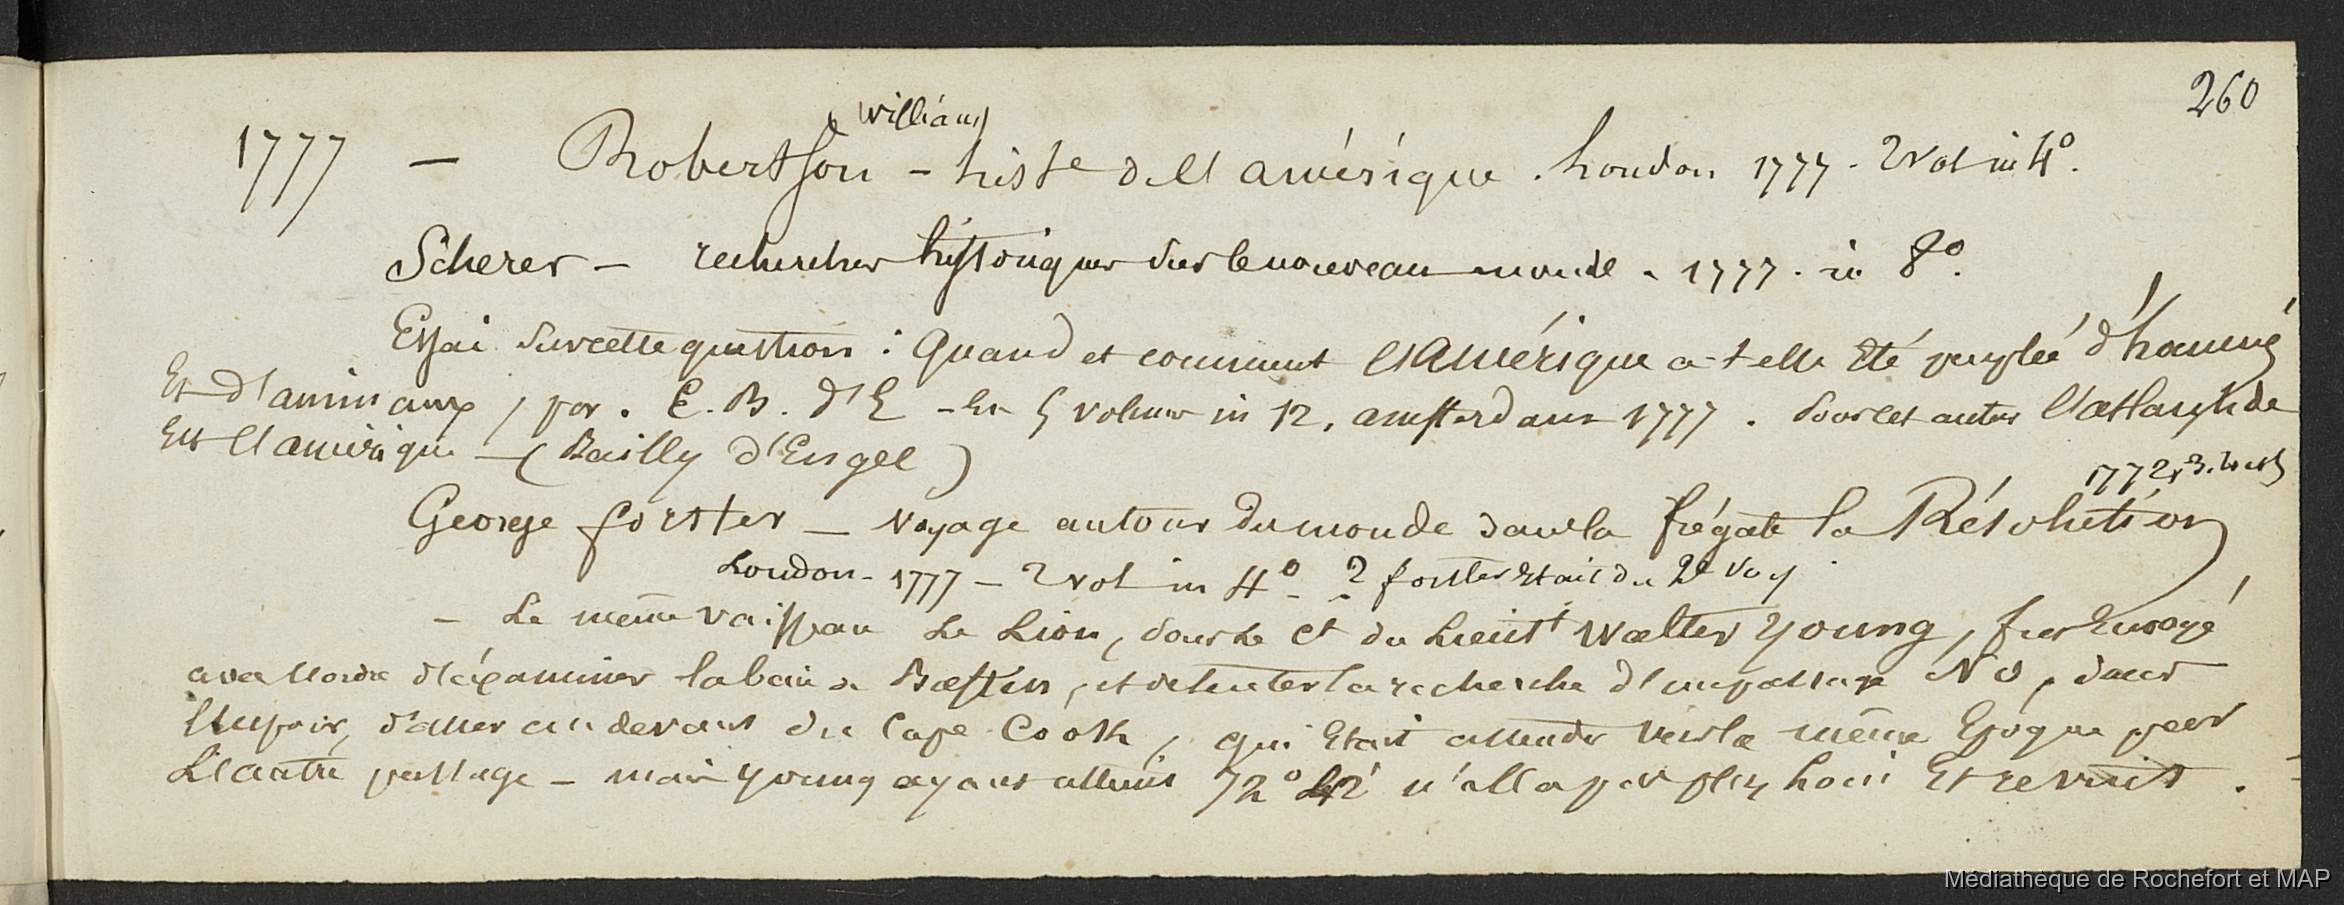 260
William
1777 — Robertson - histe de l'amérique. London 1777 - 2 vol in 4°.
Scherer — recherches historiques sur le nouveau monde - 1777. in 8°.
Essai sur cette question : Quand et comment l'Amérique a-t-elle été peuplée d'hommes
Et d'animaux, par. E. B. d'E - En 5 volumes in 12, amsterdam 1777. l'atlantide
Et l'amérique — (Bailly d'Engel)
1772, 3,
George forster — voyage autour du monde dans la frégate la Résolution
London - 1777 - 2 vol in 4° - ? forster était du 2e voy.
- Le même vaisseau Le Lion, sous le ct du Lieutt Walter Young, fut Envoyé
avec l'ordre d'éxaminer la baie de Baffin, et de tenter la recherche d'un passage NO, dans
l'Espoir, d'aller au devant du Cape Cook, qui Etait attendu vers la même Epoque par
L'autre passage - mais Young ayant atteint 72° 42' n'alla pas plus loin Et revint.
Médiathèque de Rochefort et MAP